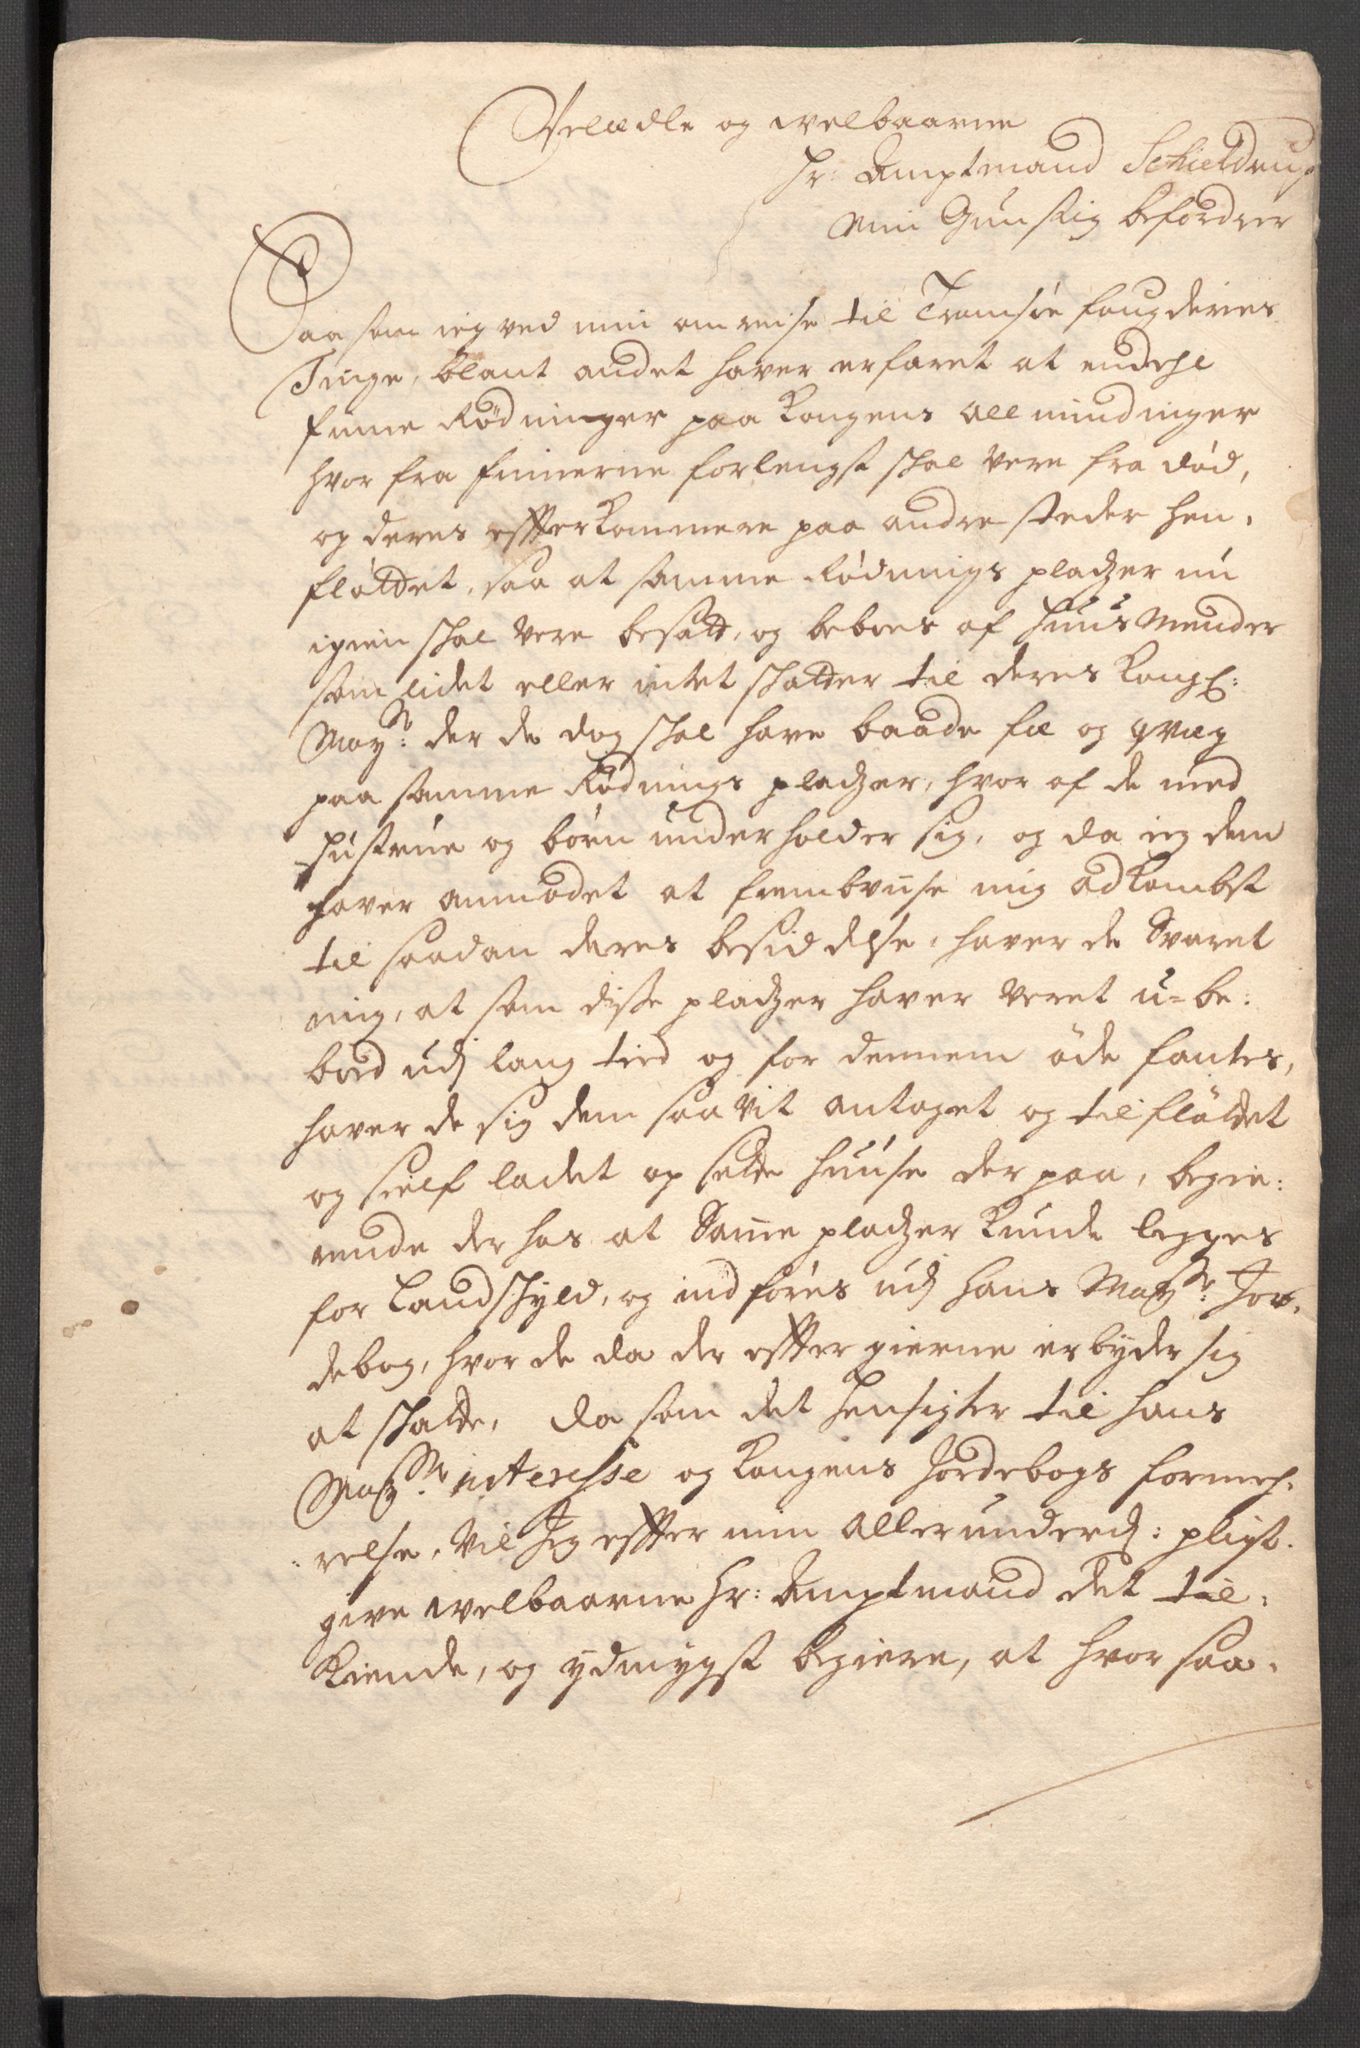 Velædle og welbaarne
Hr: Amptmand Schieldrup
Min Gunstig befordrer
Saa som ieg ved min omreise til Tromsöe fougderies
Tinge, blant andet haver erfaret at endehl
finne Rödninger paa Kongens Allmindinger
hvor fra finnerne forlengst schal vere fra död,
og deres effterkommere paa andre steder hen,
flöttet, saa at samme Rödnings pladzer nu
igien schal vere besatt, og beboes af huus Mender
som lidet eller intet schatter til deres Kongl:
Mayst: der de dog schal have baade fæ og qvæg
paa samme Rödnings pladzer, hvor af de med
hustrue og börn underholder sig, og da ieg dem
haver anmodet at frembviise mig adkombst
til saadan deres besiddelse, haver de Svaret
mig, at som disse pladzer haver veret u-be:
boed udj lang tied og for dennem öde fantes,
haver de sig dem saavit antaget og tilflöttet
og sielf ladet opsette huuse der paa, begie:
rende der hos at Same pladzer kunde legges
for Landschyld, og indföres udj hans Maysts: Jor,
debog, hvor de da der effter gierne erbyder sig
at schatte, da som det hensigter til hans
Maysts: interesse og Kongens Jordebogs formeh,
relse, vil Jeg effter min allerunderd: pligt.
give welbaarne Hr: Amptmand det til,
kiende, og ydmygst begiere, at hvor saa,